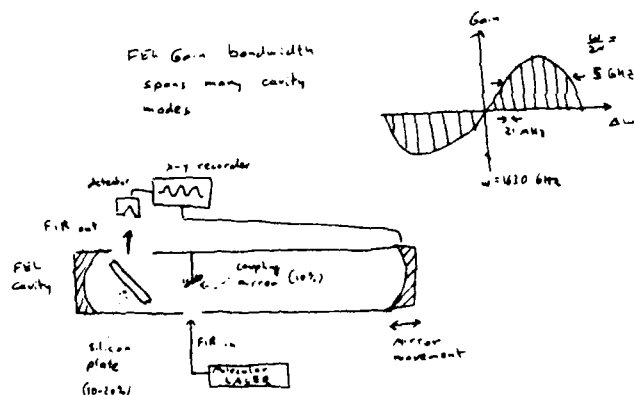 FEL Gain bandwidth
spans many cavity
modes
Gain
ω/2N =
5 GHz
21 MHz
Δω
ω = 1630 GHz
x-y recorder
detector
FIR out
FEL
cavity
coupling
mirror (10%)
silicon
plate
(10-20%)
FIR in
Molecular
LASER
mirror
movement